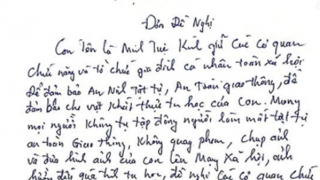 Đơn Đề Nghị
Con tên là Minh Tuệ Kính gửi Các Cơ quan
chức năng và tổ chức gia đình cá nhân toàn xã hội
Để đảm bảo An Ninh trật tự, An Toàn giao thông, để
đảm bảo cho việc khất thực tu học của con. Mong
mọi người Không tụ tập đông người làm mất trật tự
an toàn Giao thông, Không quay phim, chụp ảnh
và đưa hình ảnh của con lên Mạng Xã hội, ảnh
hưởng đến quá trình tu học, đề nghị Các Cơ quan chức